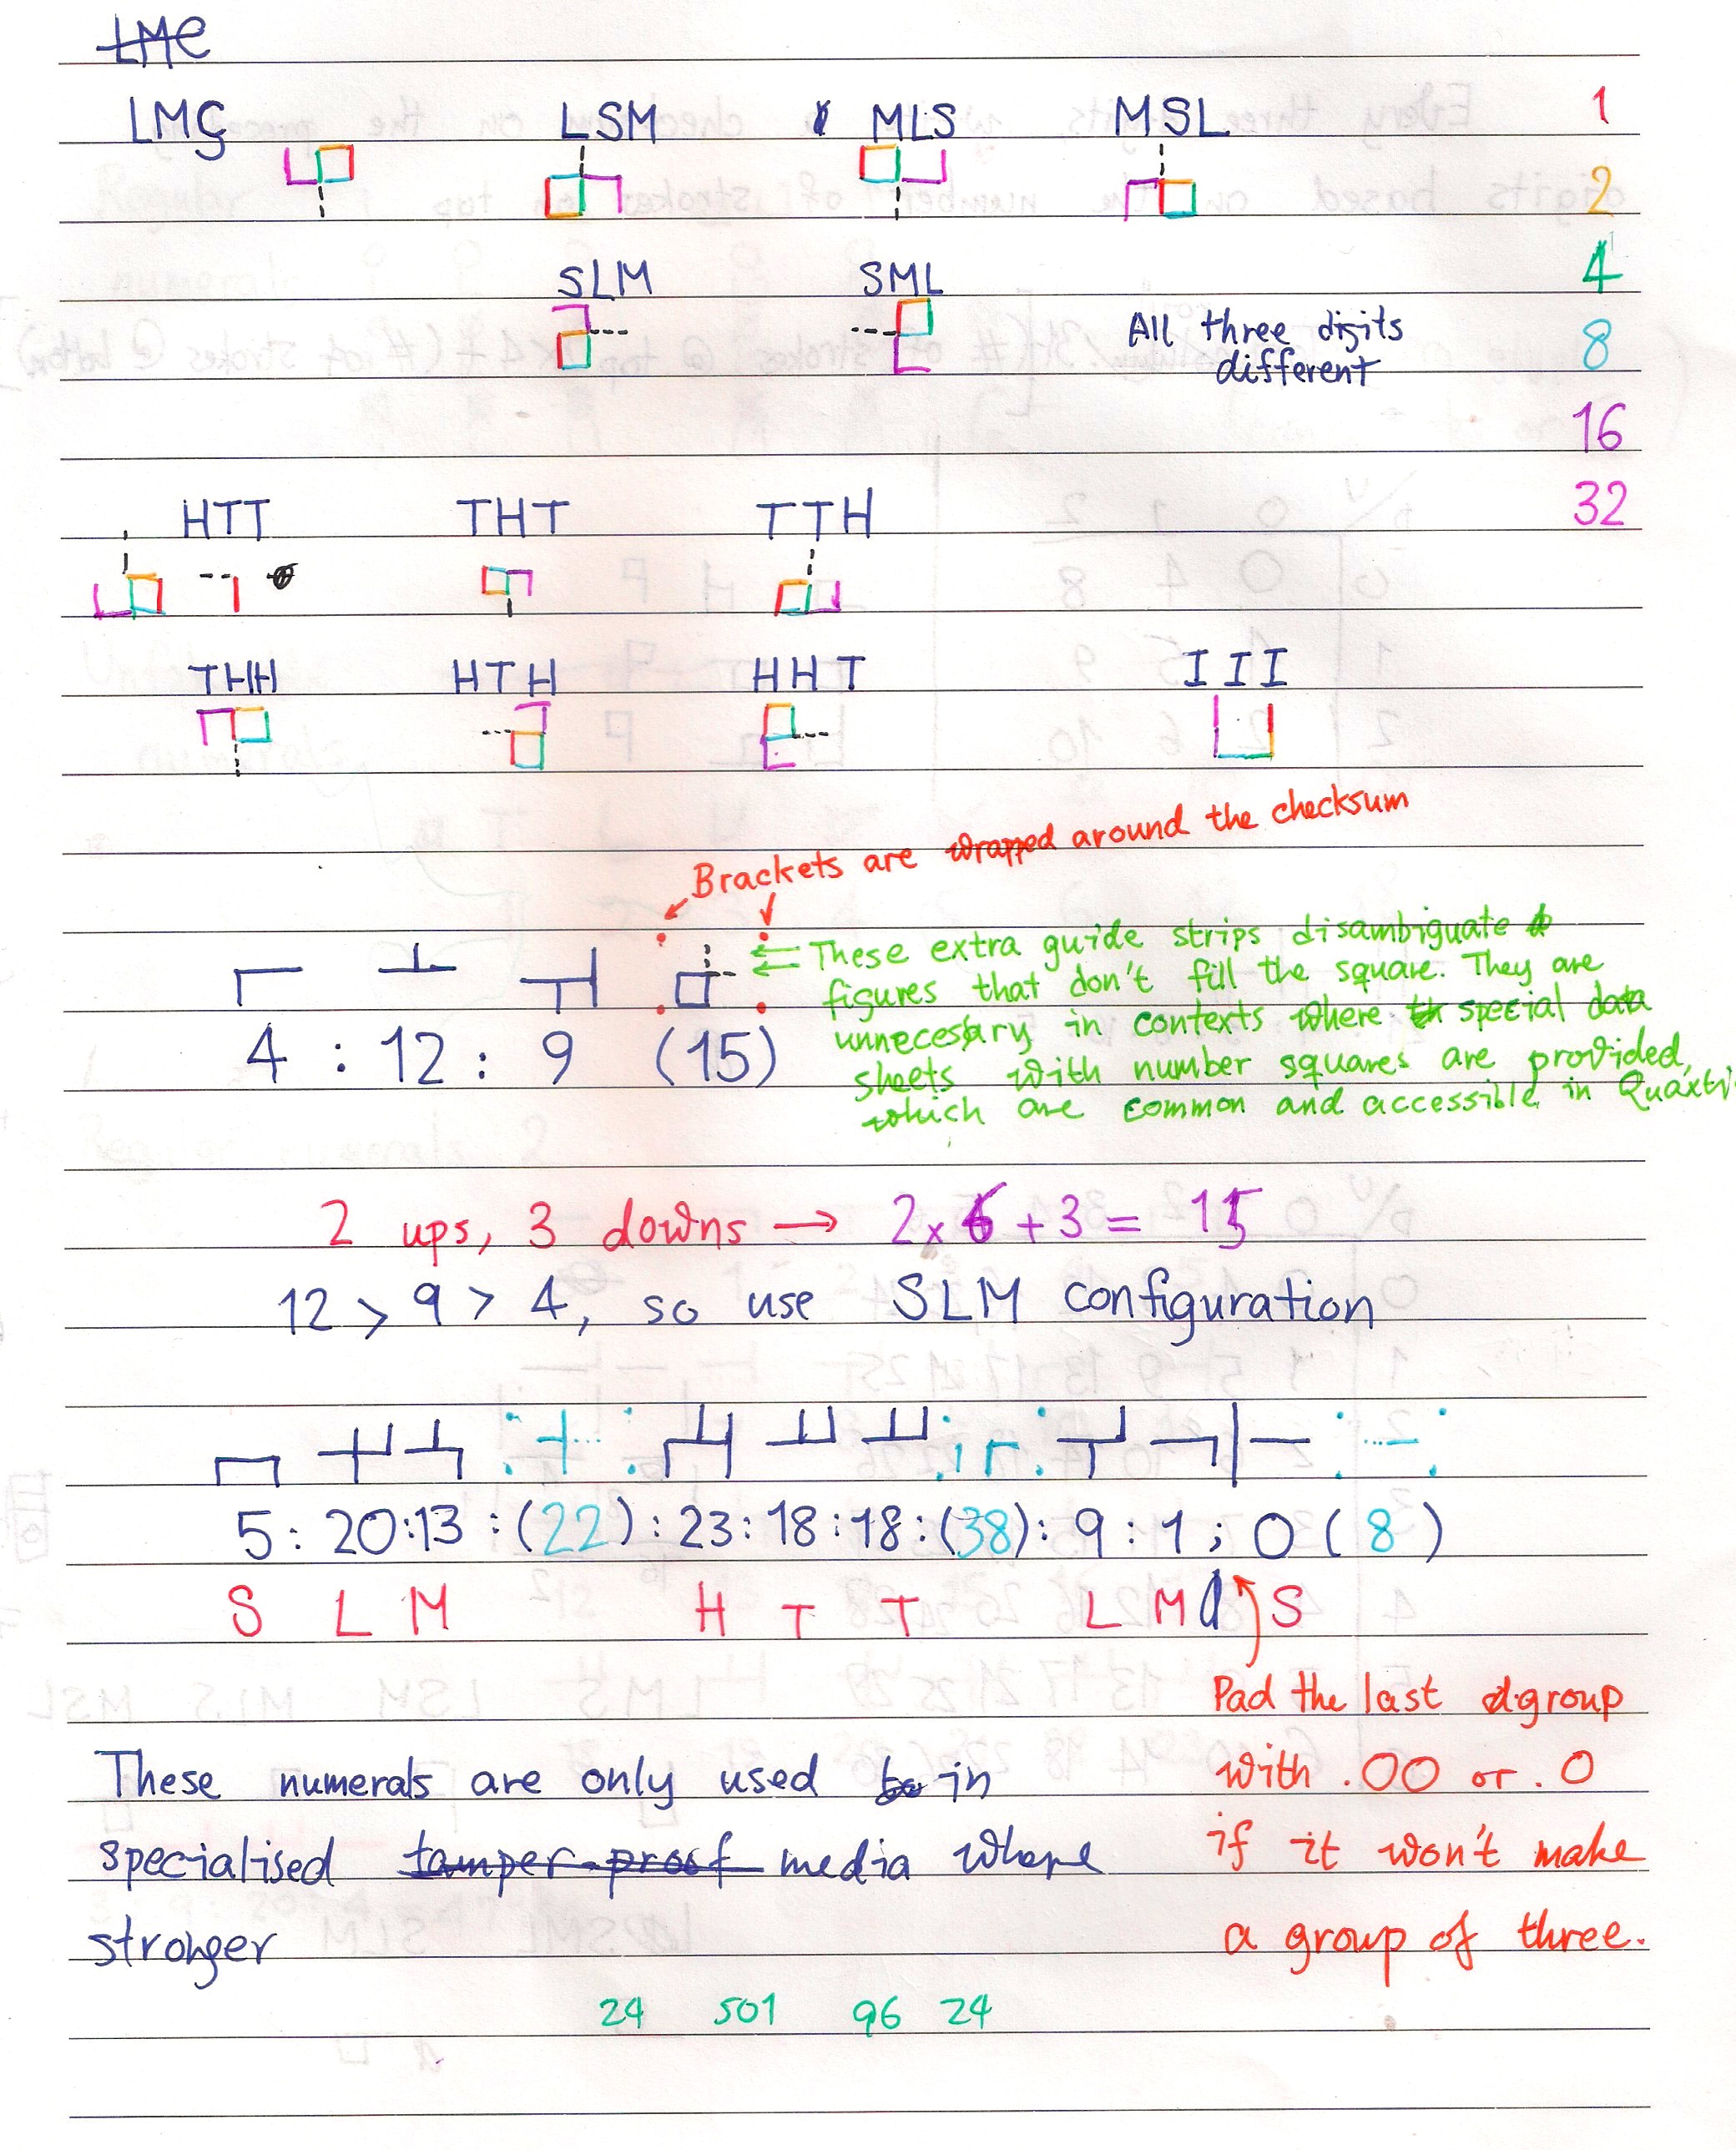 LME
LMS LSM MLS MSL 1
2
SLM SML 4
All three digits 8
different
16
HTT THT TTH 32
THH HTH HHT III
Brackets are wrapped around the checksum
These extra guide strips disambiguate
figures that don't fill the square. They are
unnecessary in contexts where special data
4 : 12 : 9 (15)
sheets with number squares are provided,
which are common and accessible in Quaxti
2 ups, 3 downs → 2×6+3 = 15
12 > 9 > 4, so use SLM configuration
5 : 20:13 :(22): 23:18:18:(38): 9 : 1 ; 0 ( 8 )
S L M H T T L M S
Pad the last group
with .00 or .0
if it won't make
a group of three.
These numerals are only used in
specialised tamper-proof media where
stronger
24 501 96 24